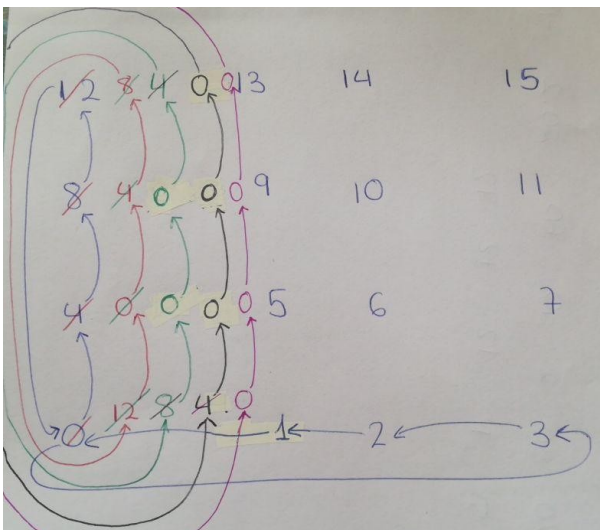 12 8 4 0 0 13 14 15
8 4 0 0 0 9 10 11
4 0 0 0 0 5 6 7
12 8 4 0
0 1 2 3